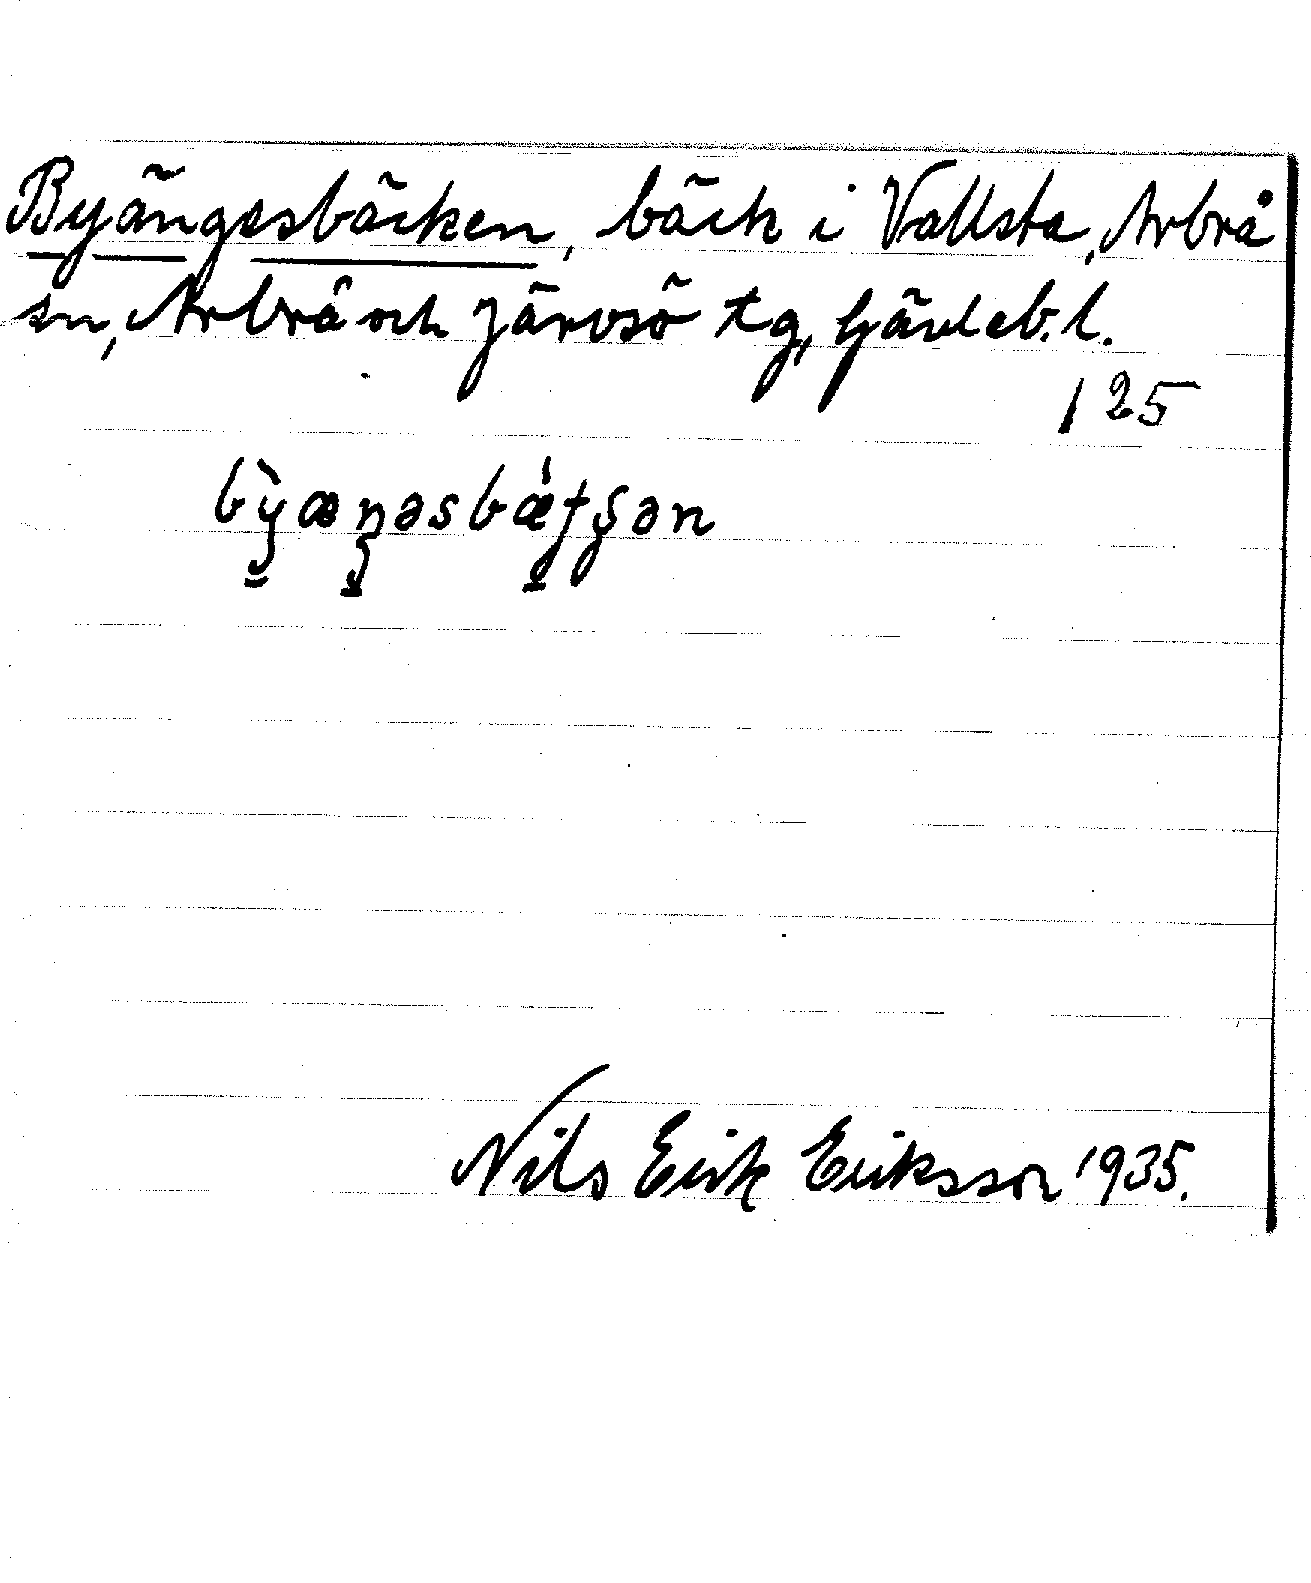 Byängesbäcken, bäck i Vallsta, Arbrå
sn, Arbrå och Järvsö tg, Gävleb. l.
125
bỳæŋəsbǽtʂən
Nils Erik Eriksson 1935.